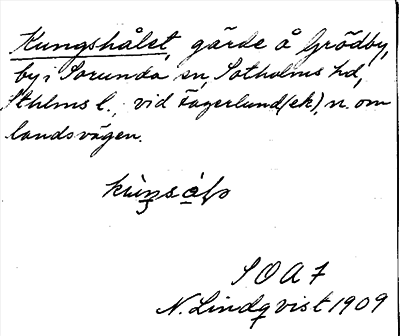 Kungshålet, gärde å Grödby,
by i Sorunda sn, Sotholms hd,
Sthlms l., vid Fagerlund (ek), n. om
landsvägen.
SOA7
N. Lindqvist 1909